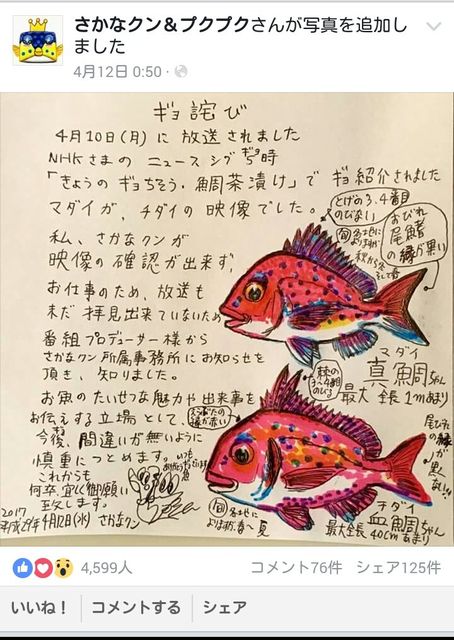 さかなクン&プクプクさんが写真を追加しました
4月12日 0:50
ギョ詫び
4月10日(月)に放送されました
NHKさまのニュースシブ5時
ギョ
「きょうのギョちそう・鯛茶漬け」でギョ紹介されました
マダイが、チダイの映像でした。
私、さかなクンが
映像の確認が出来ず、
お仕事のため、放送も
未だ拝見出来ていないため
番組プロデューサー様から
さかなクン所属事務所にお知らせを
頂き、知りました。
お魚のたいせつな魅力や出来事を
お伝えする立場として、
今後、間違いが無いように
慎重につとめます。
これからも
何卒宜しく御願い
致します。
2017
平成29年4月12日(水) さかなクン
とげの3.4番目
のびない
旬 各地に
よりますが
秋から冬
そして春
おびれ
尾鰭
の縁が黒い
マダイ
真鯛ちゃん
最大全長1mあまり
棘の
3〜4番目
のびる
えらぶたの
縁が赤い
尾びれの縁
が黒くない!!
旬 各地に
よりますが 春〜夏
チダイ
血鯛ちゃん
最大全長40cmあまり
4,599人
コメント76件 シェア125件
いいね!
コメントする
シェア